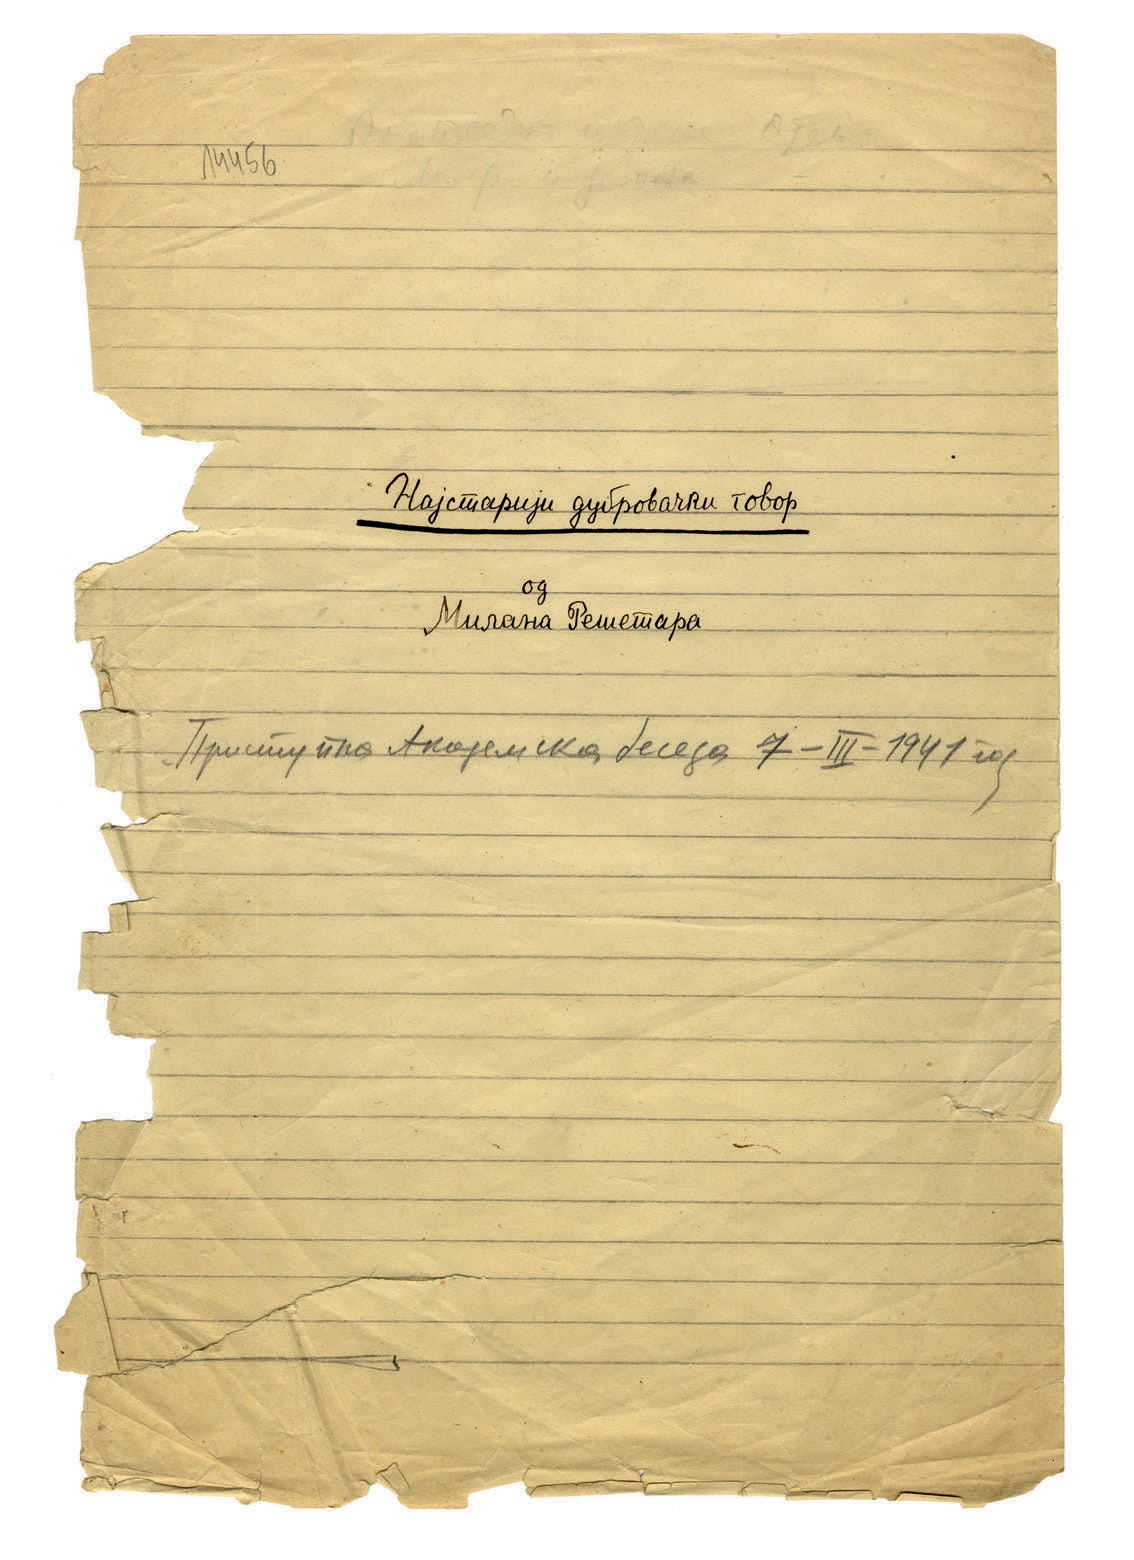 14456
Најстарији дубровачки говор
од
Милана Решетара
Приступна Академска беседа 7-III-1941 год